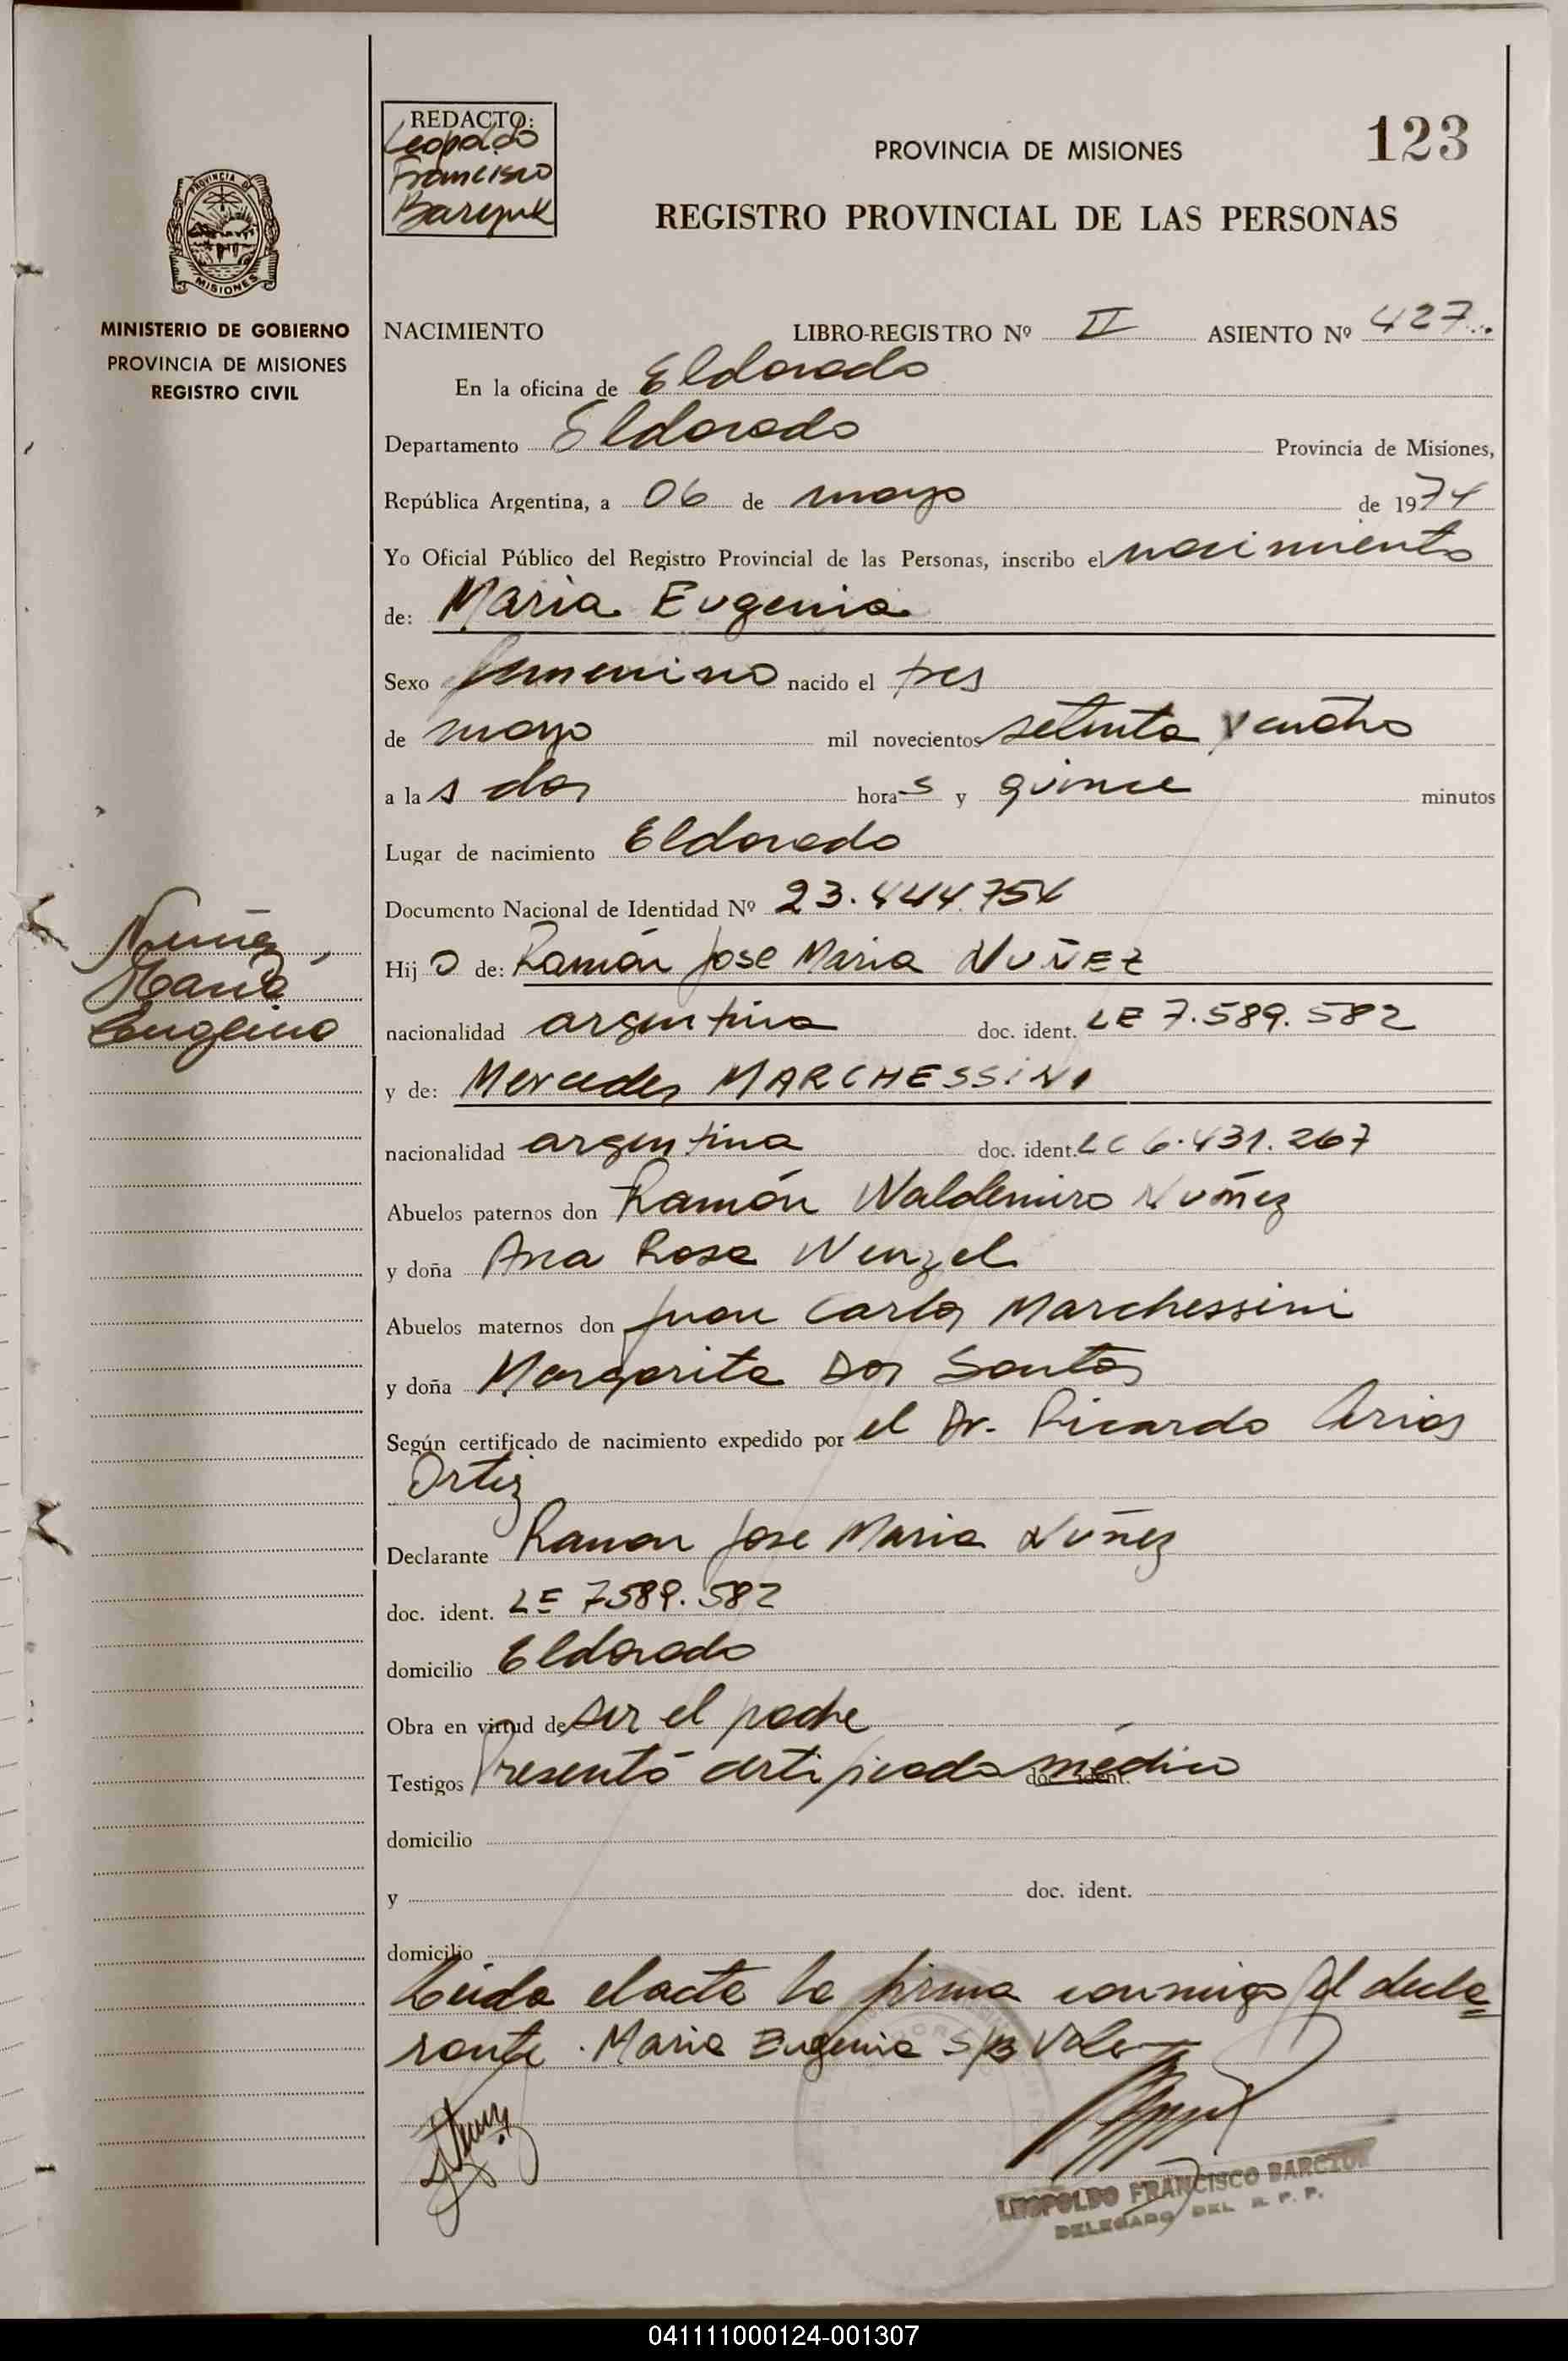 REDACTO:
Leopoldo
Francisco
PROVINCIA DE MISIONES
123
REGISTRO PROVINCIAL DE LAS PERSONAS
PROVINCIA DE
MISIONES
MINISTERIO DE GOBIERNO
PROVINCIA DE MISIONES
REGISTRO CIVIL
NACIMIENTO LIBRO-REGISTRO Nº II ASIENTO Nº 427
En la oficina de Eldorado
Departamento Eldorado Provincia de Misiones,
República Argentina, a 06 de mayo de 1974
Yo Oficial Público del Registro Provincial de las Personas, inscribo el nacimiento
de: Maria Eugenia
Sexo femenino nacido el tres
de mayo mil novecientos setenta y cuatro
a las dos horas y quince minutos
Lugar de nacimiento Eldorado
Documento Nacional de Identidad Nº 23.444.754
Nuñez
Maria
Eugenia
Hijo de: Ramón Jose Maria NUÑEZ
nacionalidad argentina doc. ident. LE 7.589.582
y de: Mercedes MARCHESSINI
nacionalidad argentina doc. ident. LC 6.431.267
Abuelos paternos don Ramón Waldemiro Nuñez
y doña Ana Rosa Wenzel
Abuelos maternos don Juan Carlos Marchessini
y doña Margarita Dos Santos
Según certificado de nacimiento expedido por el Dr. Ricardo Arias
Ortiz
Declarante Ramon Jose Maria Nuñez
doc. ident. LE 7589.582
domicilio Eldorado
Obra en virtud de ser el padre
Testigos Presentó certificado médico doc. ident.
domicilio
y doc. ident.
domicilio
Leida el acta la firma conmigo el decla=
rante. Maria Eugenia S/B Vale
LEOPOLDO FRANCISCO BARCZUK
DELEGADO DEL R. P. P.
041111000124-001307